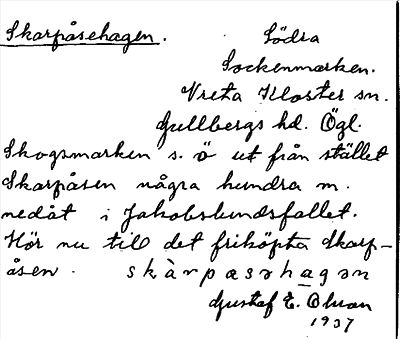 Skarpåsehagen. Södra
Sockenmarken.
Vreta Kloster sn.
Gullbergs hd. Ögl.
Skogsmarken s. ö ut från stället
Skarpåsen några hundra m.
nedåt i Jakobslundsfallet.
Hör nu till det friköpta Skarp-
åsen. skàrpasəhagən
Gustaf E. Olsson
1937